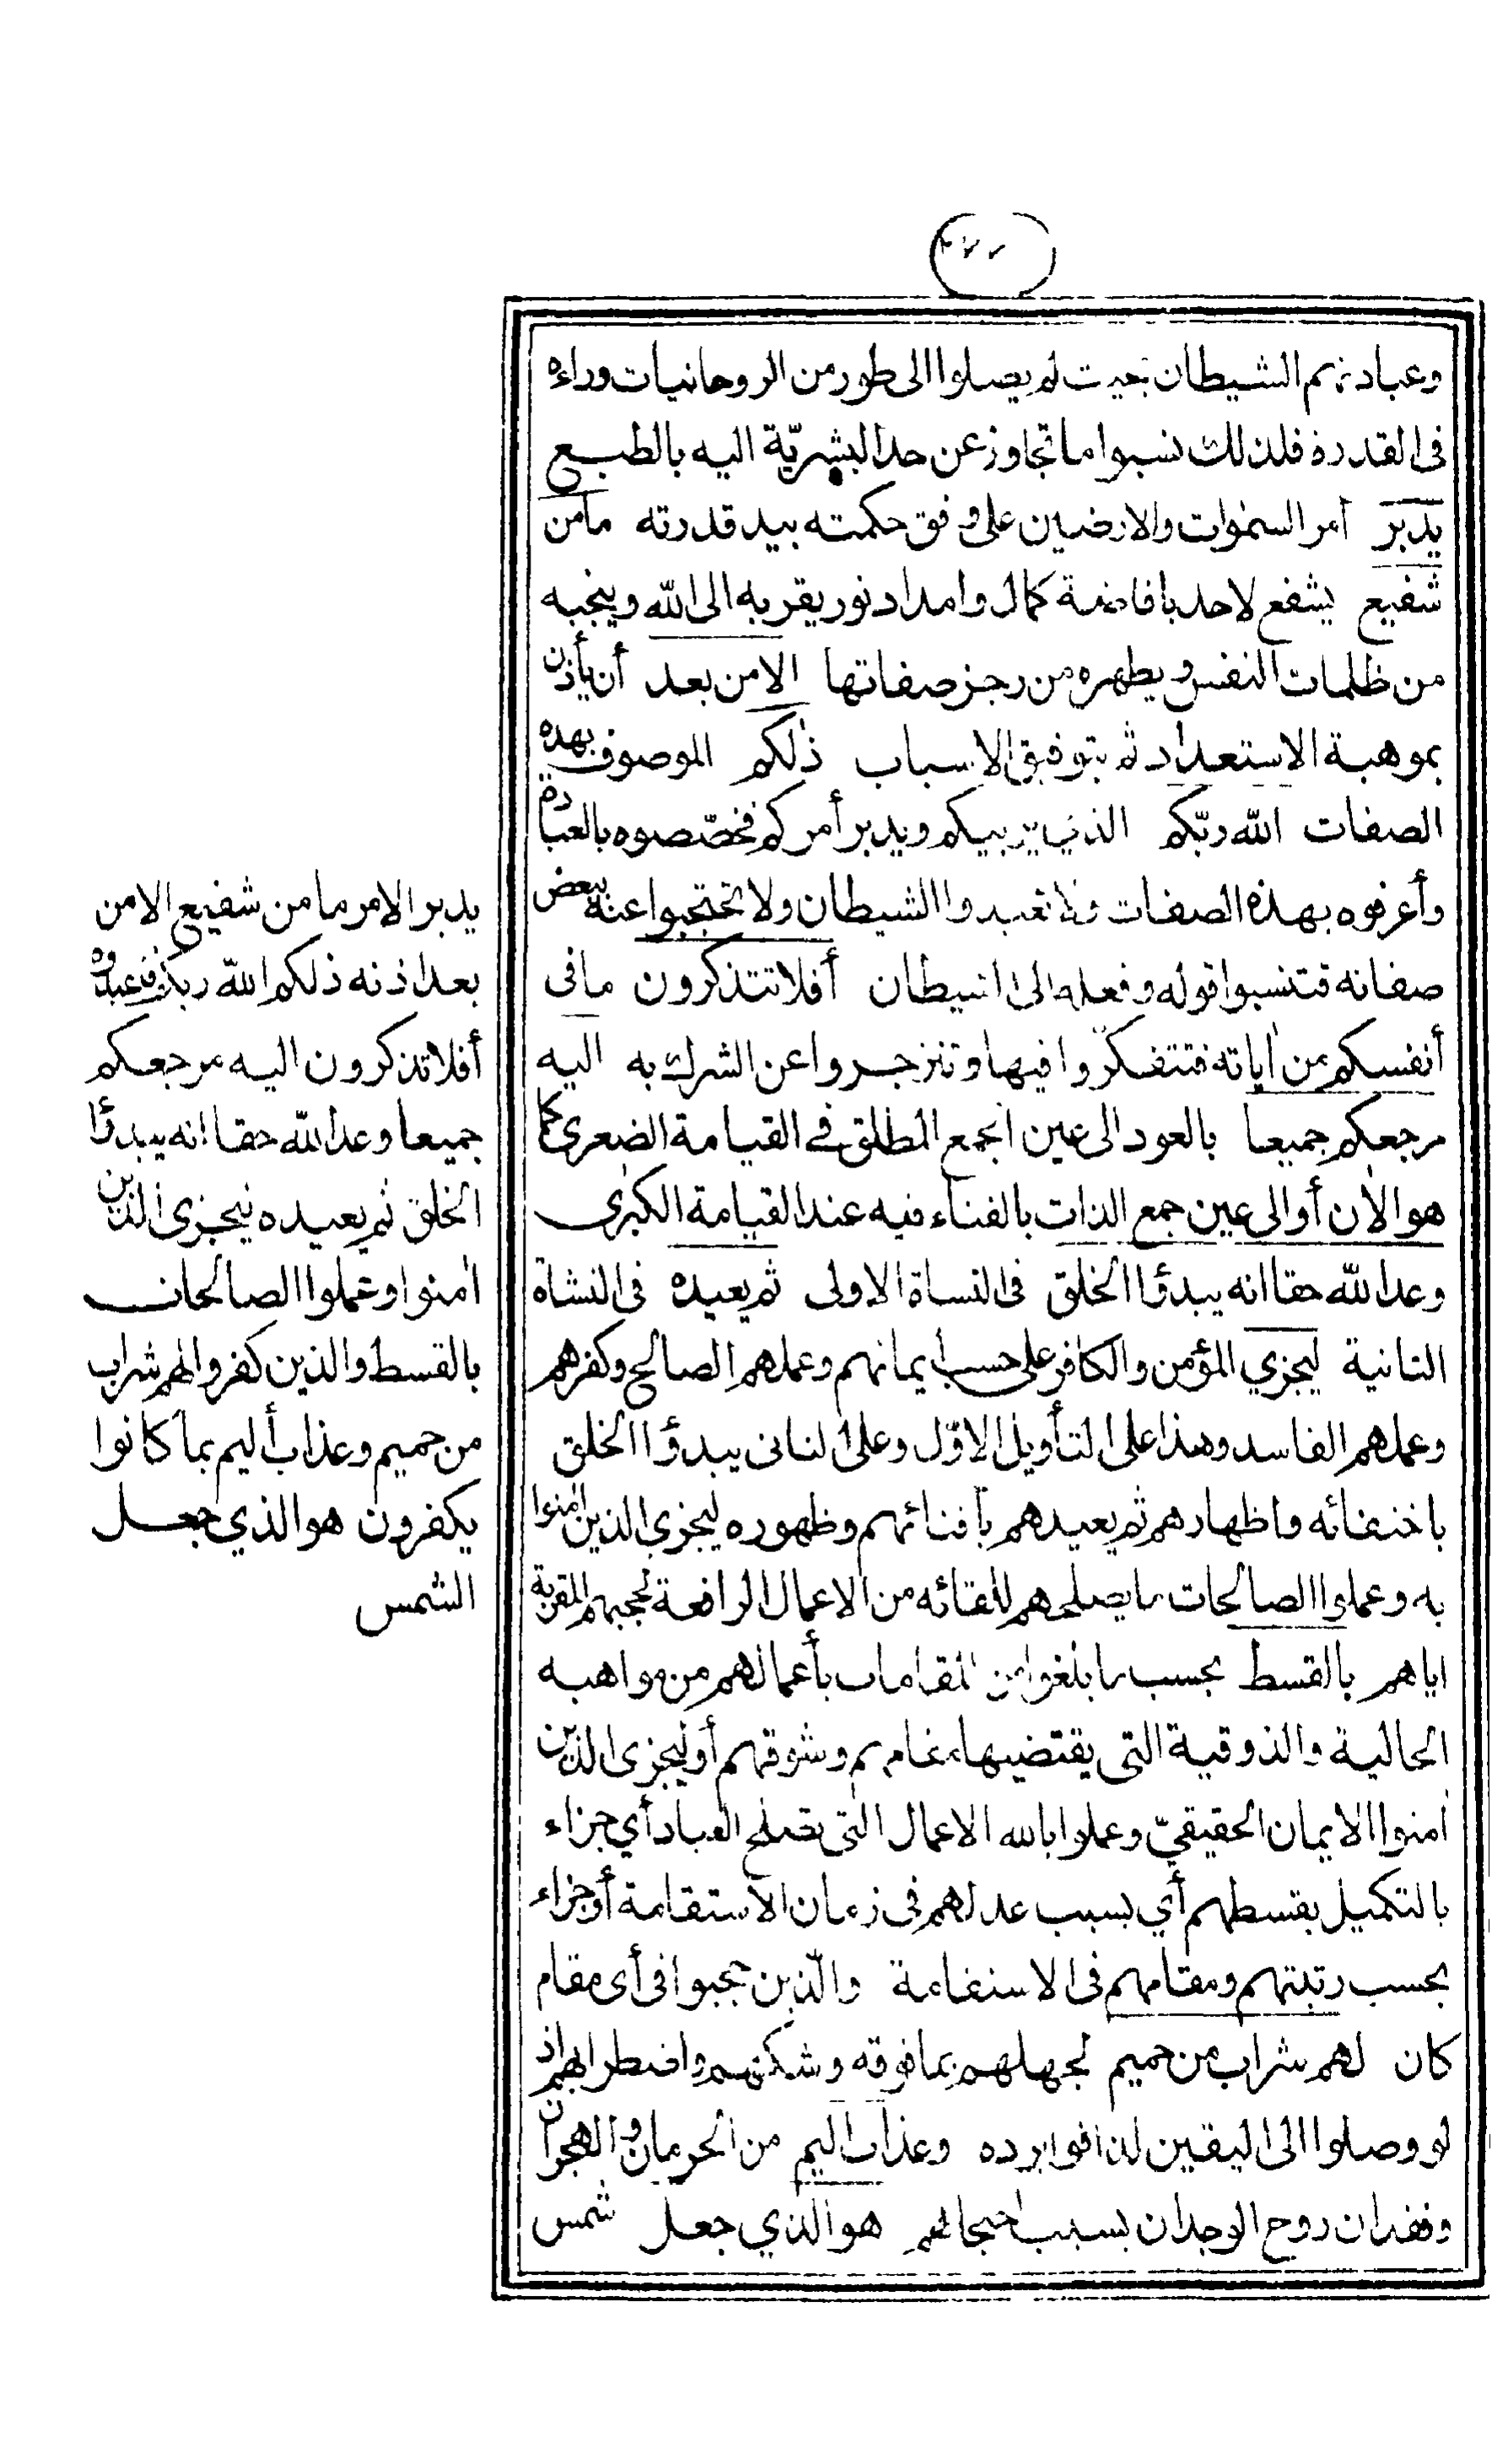 وعبادتهم الشيطان بحيث لم يصلوا الى طور من الروحانيات وراءه
فى القدرة فلذلك نسبوا ما تجاوز عن حد البشريّة اليه بالطبع
يدبر أمر السموات والارضين على وفق حكمته بيد قدرته مامن
شفيع يشفع لاحد بافاضة كمال وامداد نور يقربه الى الله وينجيه
من ظلمات النفس ويطهره من رجز صفاتها الا من بعد أن يأذن
بموهبة الاستعداد ثم بتوفيق الاسباب ذلكم الموصوف بهذه
الصفات الله ربّكم الذي يربيكم ويدبر أمركم فخصّصوه بالعبادة
وأعرفوه بهذه الصفات ولا تعبدوا الشيطان ولا تحتجبوا عنه ببعض
صفاته فتنسبوا قوله وفعله الى الشيطان أفلا تتذكرون مافى
أنفسكم من آياته فتتفكروا فيها وتنزجروا عن الشرك به اليه
مرجعكم جميعا بالعود الى عين الجمع المطلق في القيامة الصغرى كما
هو الآن أوالى عين جمع الذات بالفناء فيه عند القيامة الكبرى
وعد الله حقا انه يبدؤا الخلق فى النشاة الاولى ثم يعيده فى النشاة
الثانية ليجزي المؤمن والكافر على حسب ايمانهم وعملهم الصالح وكفرهم
وعملهم الفاسد وهذا على التأويل الاوّل وعلى الثانى يبدؤا الخلق
باختفائه واظهارهم ثم يعيدهم بافنائهم وظهوره ليجزي الذين امنوا
به وعملوا الصالحات ما يصلحهم للقائه من الاعمال الرافعة لحجبهم المقربة
اياهم بالقسط بحسب ما بلغوا من المقامات بأعمالهم من مواهبه
الحالية والذوقية التى يقتضيها مقامهم وشوقهم أو ليجزى الذين
امنوا الايمان الحقيقيّ وعملوا بالله الاعمال التى تصلح العباد أي جزاء
بالتكميل بقسطهم أي بسبب عدلهم فى زمان الاستقامة أو جزاء
بحسب رتبتهم ومقامهم فى الاستقامة والّذين حجبوا فى أى مقام
كان لهم شراب من حميم لجهلهم بما فوقه وشكهم واضطرابهم اذ
لو وصلوا الى اليقين لذاقوا برده وعذاب اليم من الحرمان والهجران
وفقدان روح الوجدان بسبب احتجابهم هو الذي جعل شمس
يدبر الامر ما من شفيع الا من
بعد اذنه ذلكم الله ربكم فاعبدوه
أفلا تذكرون اليه مرجعكم
جميعا وعد الله حقا انه يبدؤا
الخلق ثم يعيده ليجزى الذين
امنوا وعملوا الصالحات
بالقسط والذين كفروا لهم شراب
من حميم وعذاب أليم بما كانوا
يكفرون هو الذي جعل
الشمس